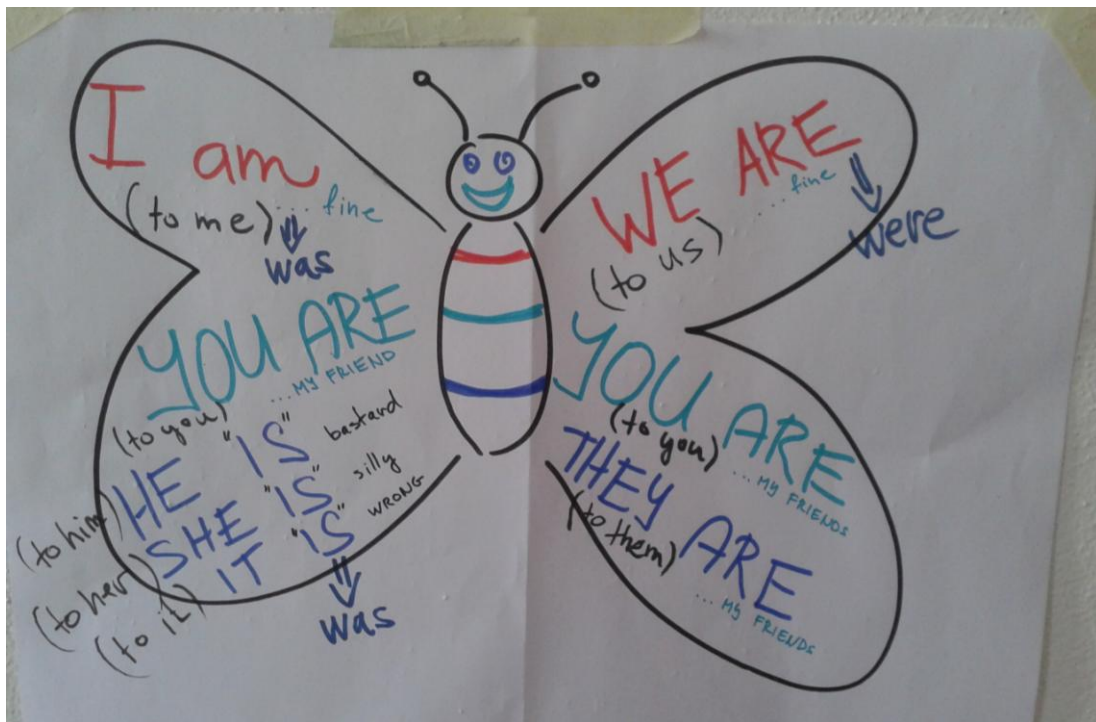 I am
(to me) ... fine
was
YOU ARE
... MY FRIEND
(to you)
HE "IS" bastard
(to him)
SHE "IS" silly
(to her)
IT "IS" WRONG
(to it)
was
WE ARE
... fine
(to us)
were
YOU ARE
(to you) ... MY FRIENDS
THEY ARE
(to them)
... MY FRIENDS